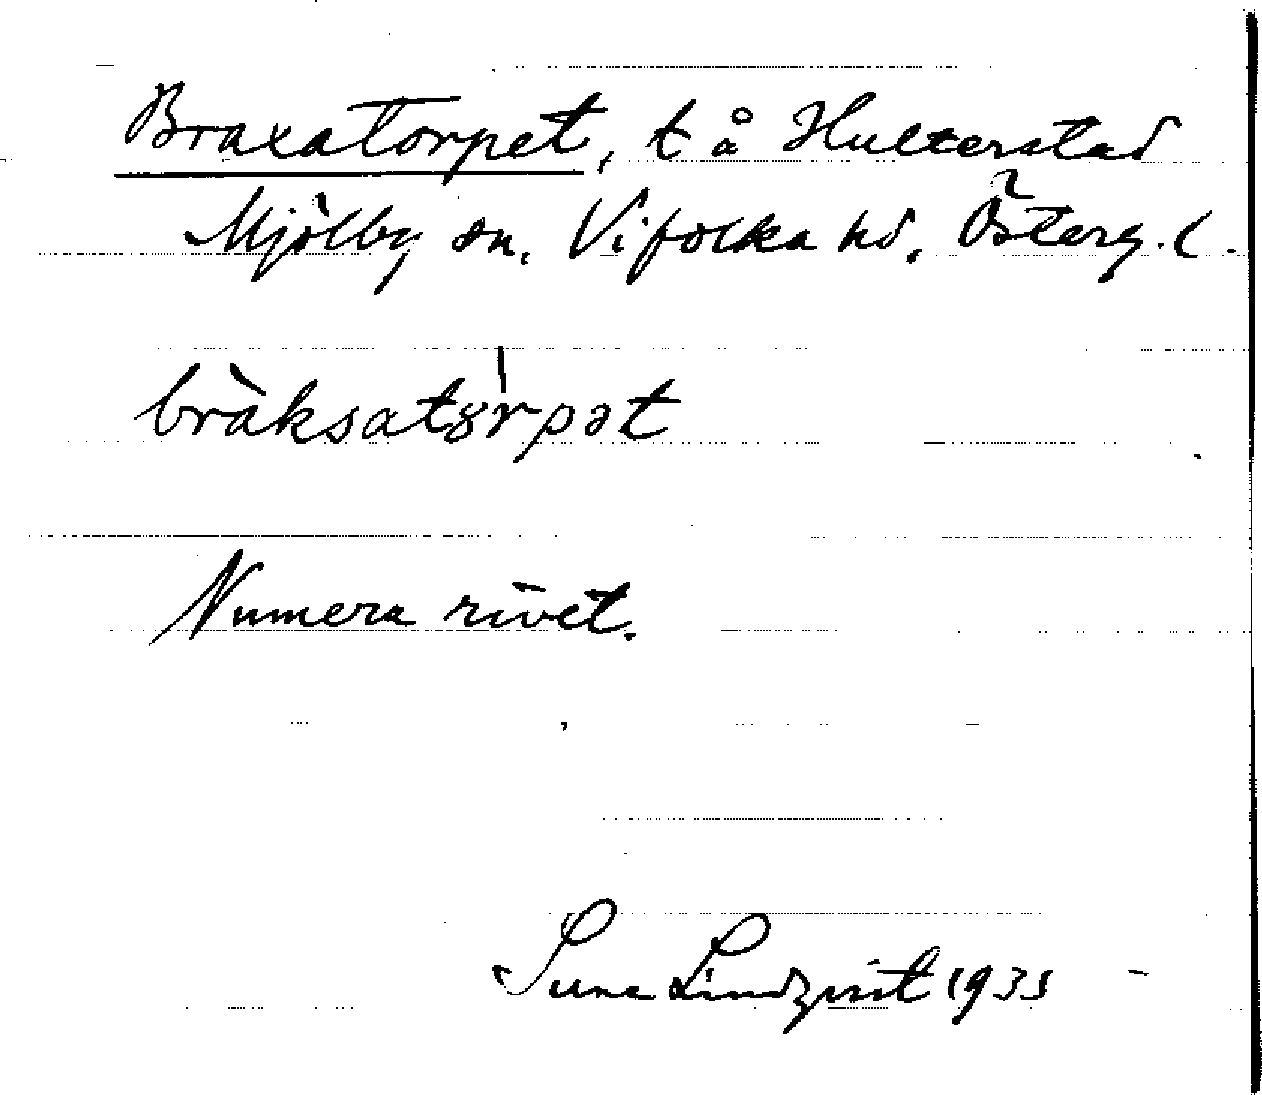 Braxatorpet, t å Hulterstad
Mjölby sn. Vifolka hd, Österg. l.
bràksatȣ̍rpət
Numera rivet.
Sune Lindqvist 1935